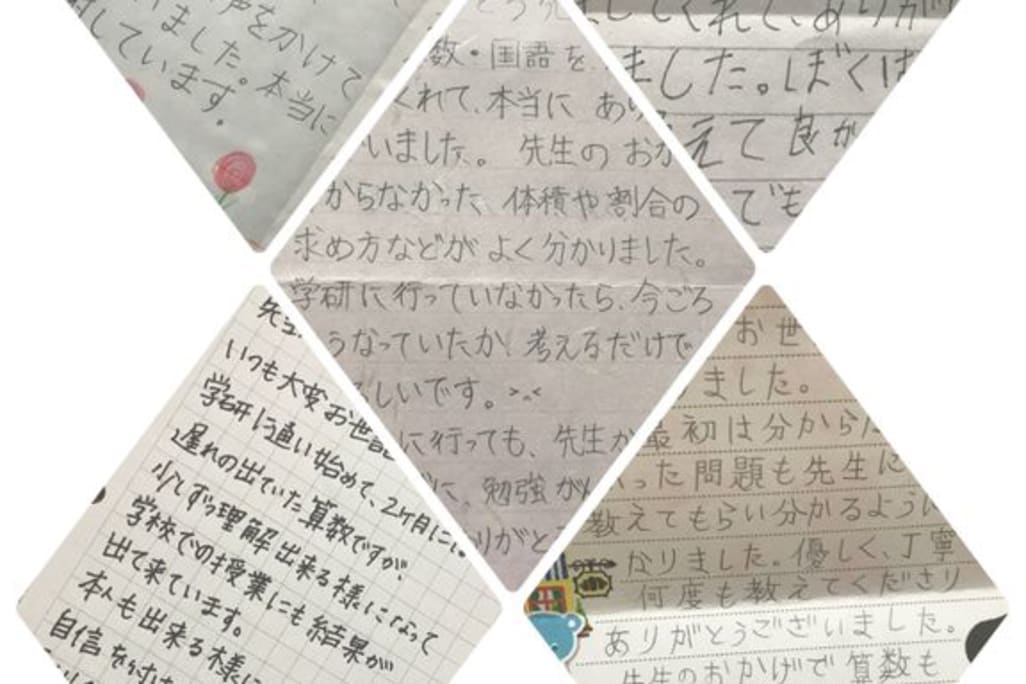 声をかけて
いました。本当に
しています。
数・国語を
くれて、本当に あり
いました。先生の おか
からなかった 体積や割合の
求め方などが よく分かりました。
学研に行っていなかったら、今ごろ
うなっていたか 考えるだけで
しいです。 >~<
に行っても、先生が
に、勉強 がん
りがと
してくれて、ありが
ました。ぼくは
えて 良か
でも
先生
いつも大変お世話
学研に通い始めて、2ヶ月に
遅れの出ていた算数ですが、
少しずつ理解出来る様になって
学校での授業にも結果が
出て来ています。
本人も出来る様に
自信を付け
お世
ました。
最初は分から
った問題も先生に
教えてもらい分かるように
かりました。優しく、丁寧
何度も教えてくださり
ありがとうございました。
先生のおかげで算数も